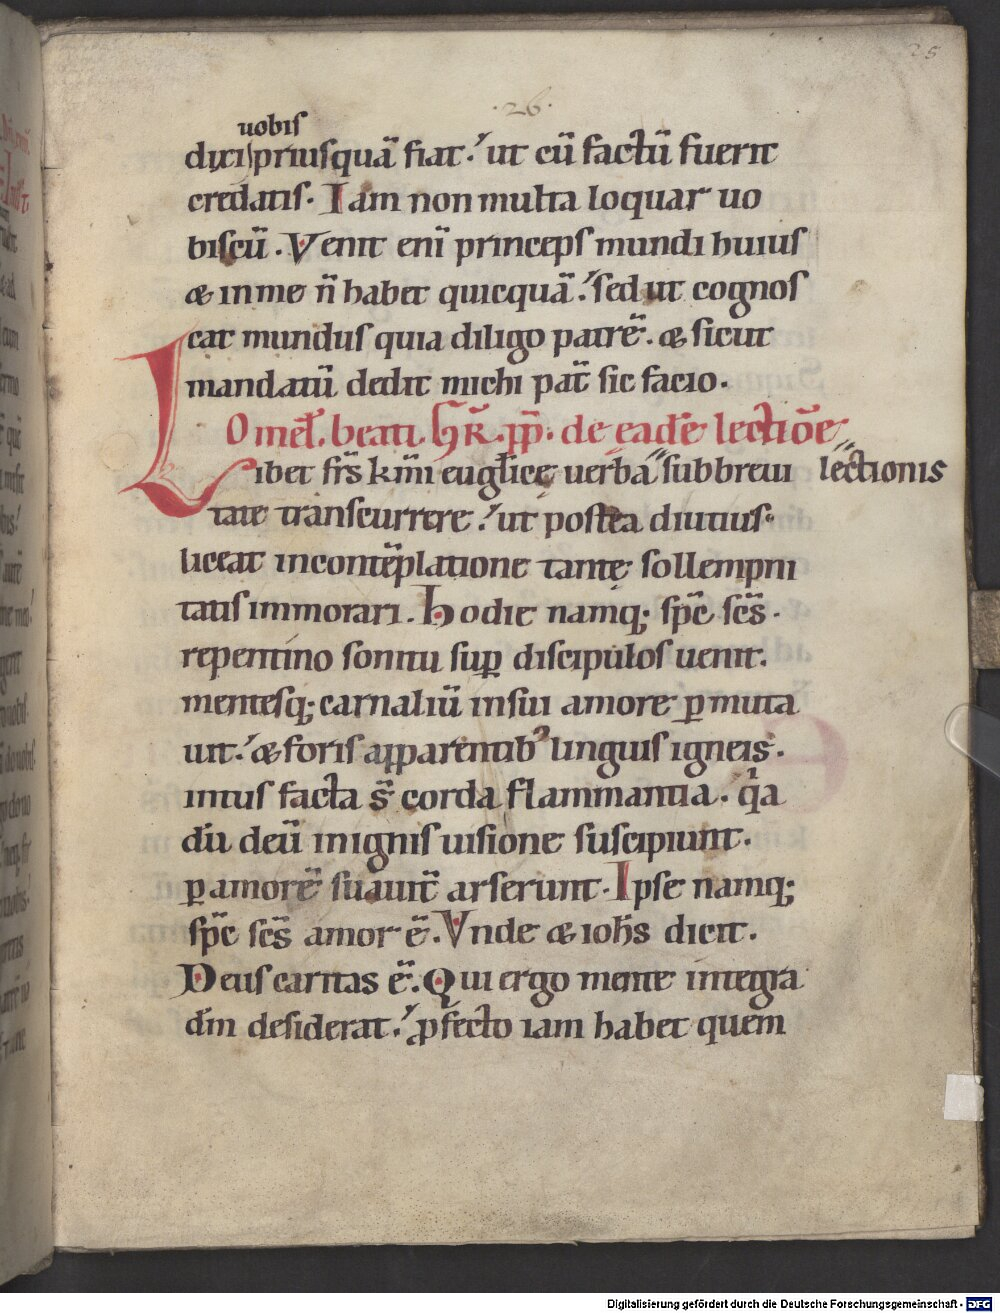 25
·26·
uobis
dixi priusquā fiat. ut cū factū fuerit
credatis. Iam non multa loquar uo
biscū. Venit eni princeps mundi huius
& in me n̄ habet quicquā. sed ut cognos
cat mundus quia diligo patrē. & sicut
mandatū dedit michi pat̄ sic facio.
Omel̄. beati GR̄. pp̄. de eadē lectiōe
Libet fr̄s km̄i eugl̄icę uerba sub breui lectionis
tate transcurrere. ut postea diutius
liceat in contēplatione tantę sollempni
tatis immorari. Hodie namq; sp̄c sc̄s.
repentino sonitu suꝑ discipulos uenit.
mentesq; carnaliū in sui amore ꝑmuta
uit. & foris apparentibꝰ linguis igneis.
intus facta s̄ corda flammantia. qa
dū deū in ignis uisione suscipiunt.
ꝑ amorē suauit̄ arserunt. Ipse namq;
sp̄c sc̄s amor ē. Vnde & ioh̄s dicit.
Deus caritas ē. Qui ergo mente integra
dm̄ desiderat. ꝓfecto iam habet quem
Digitalisierung gefördert durch die Deutsche Forschungsgemeinschaft - DFG